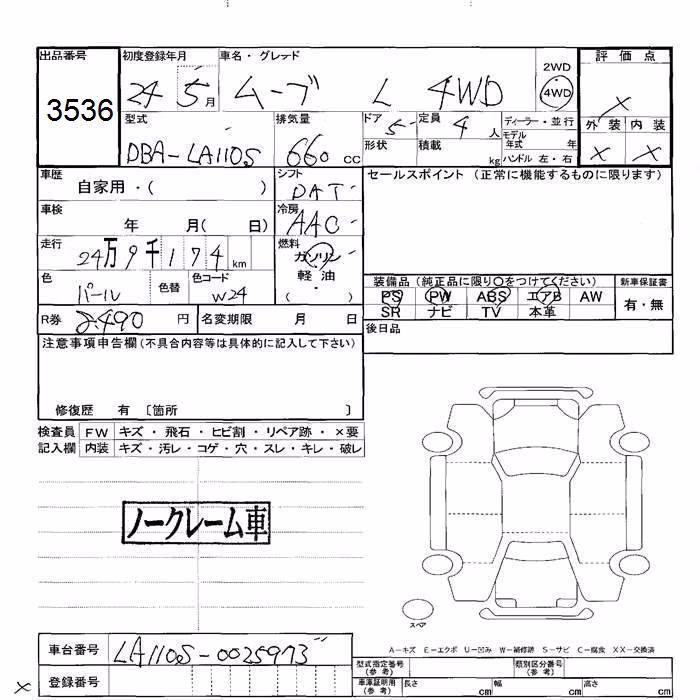 出品番号
3536
初度登録年月
24 5月
車名・グレード
ムーブ L 4WD
2WD
4WD
評価点
×
外装 内装
× ×
型式
DBA-LA110S
排気量
660 cc
ドア 5
定員 4人
形状
積載 kg
ディーラー・並行
モデル年式 年
ハンドル 左・右
車歴
自家用・( )
シフト
DAT
セールスポイント (正常に機能するものに限ります)
車検
年 月( 日)
冷房
AAC
走行
24万9千174km
燃料
ガソリン
軽油
( )
色
パール
色替
色コード
W24
装備品 (純正品に限り○をつけてください)
新車保証書
PS PW ABS エアB AW
有・無
SR ナビ TV 本革
R券
円
名変期限 月 日
後日品
注意事項申告欄(不具合内容等は具体的に記入して下さい)
修復歴 有 〔箇所 〕
検査員 FW キズ・飛石・ヒビ割・リペア跡・×要
記入欄 内装 キズ・汚レ・コゲ・穴・スレ・キレ・破レ
ノークレーム車
スペア
A-キズ E-エクボ U-凹み W-補修跡 S-サビ C-腐食 XX-交換済
車台番号
LA110S-0025973
型式指定番号
(参考)
類別区分番号
(参考)
×
登録番号
車庫証明用
(参考)
長さ cm 幅 cm 高さ cm